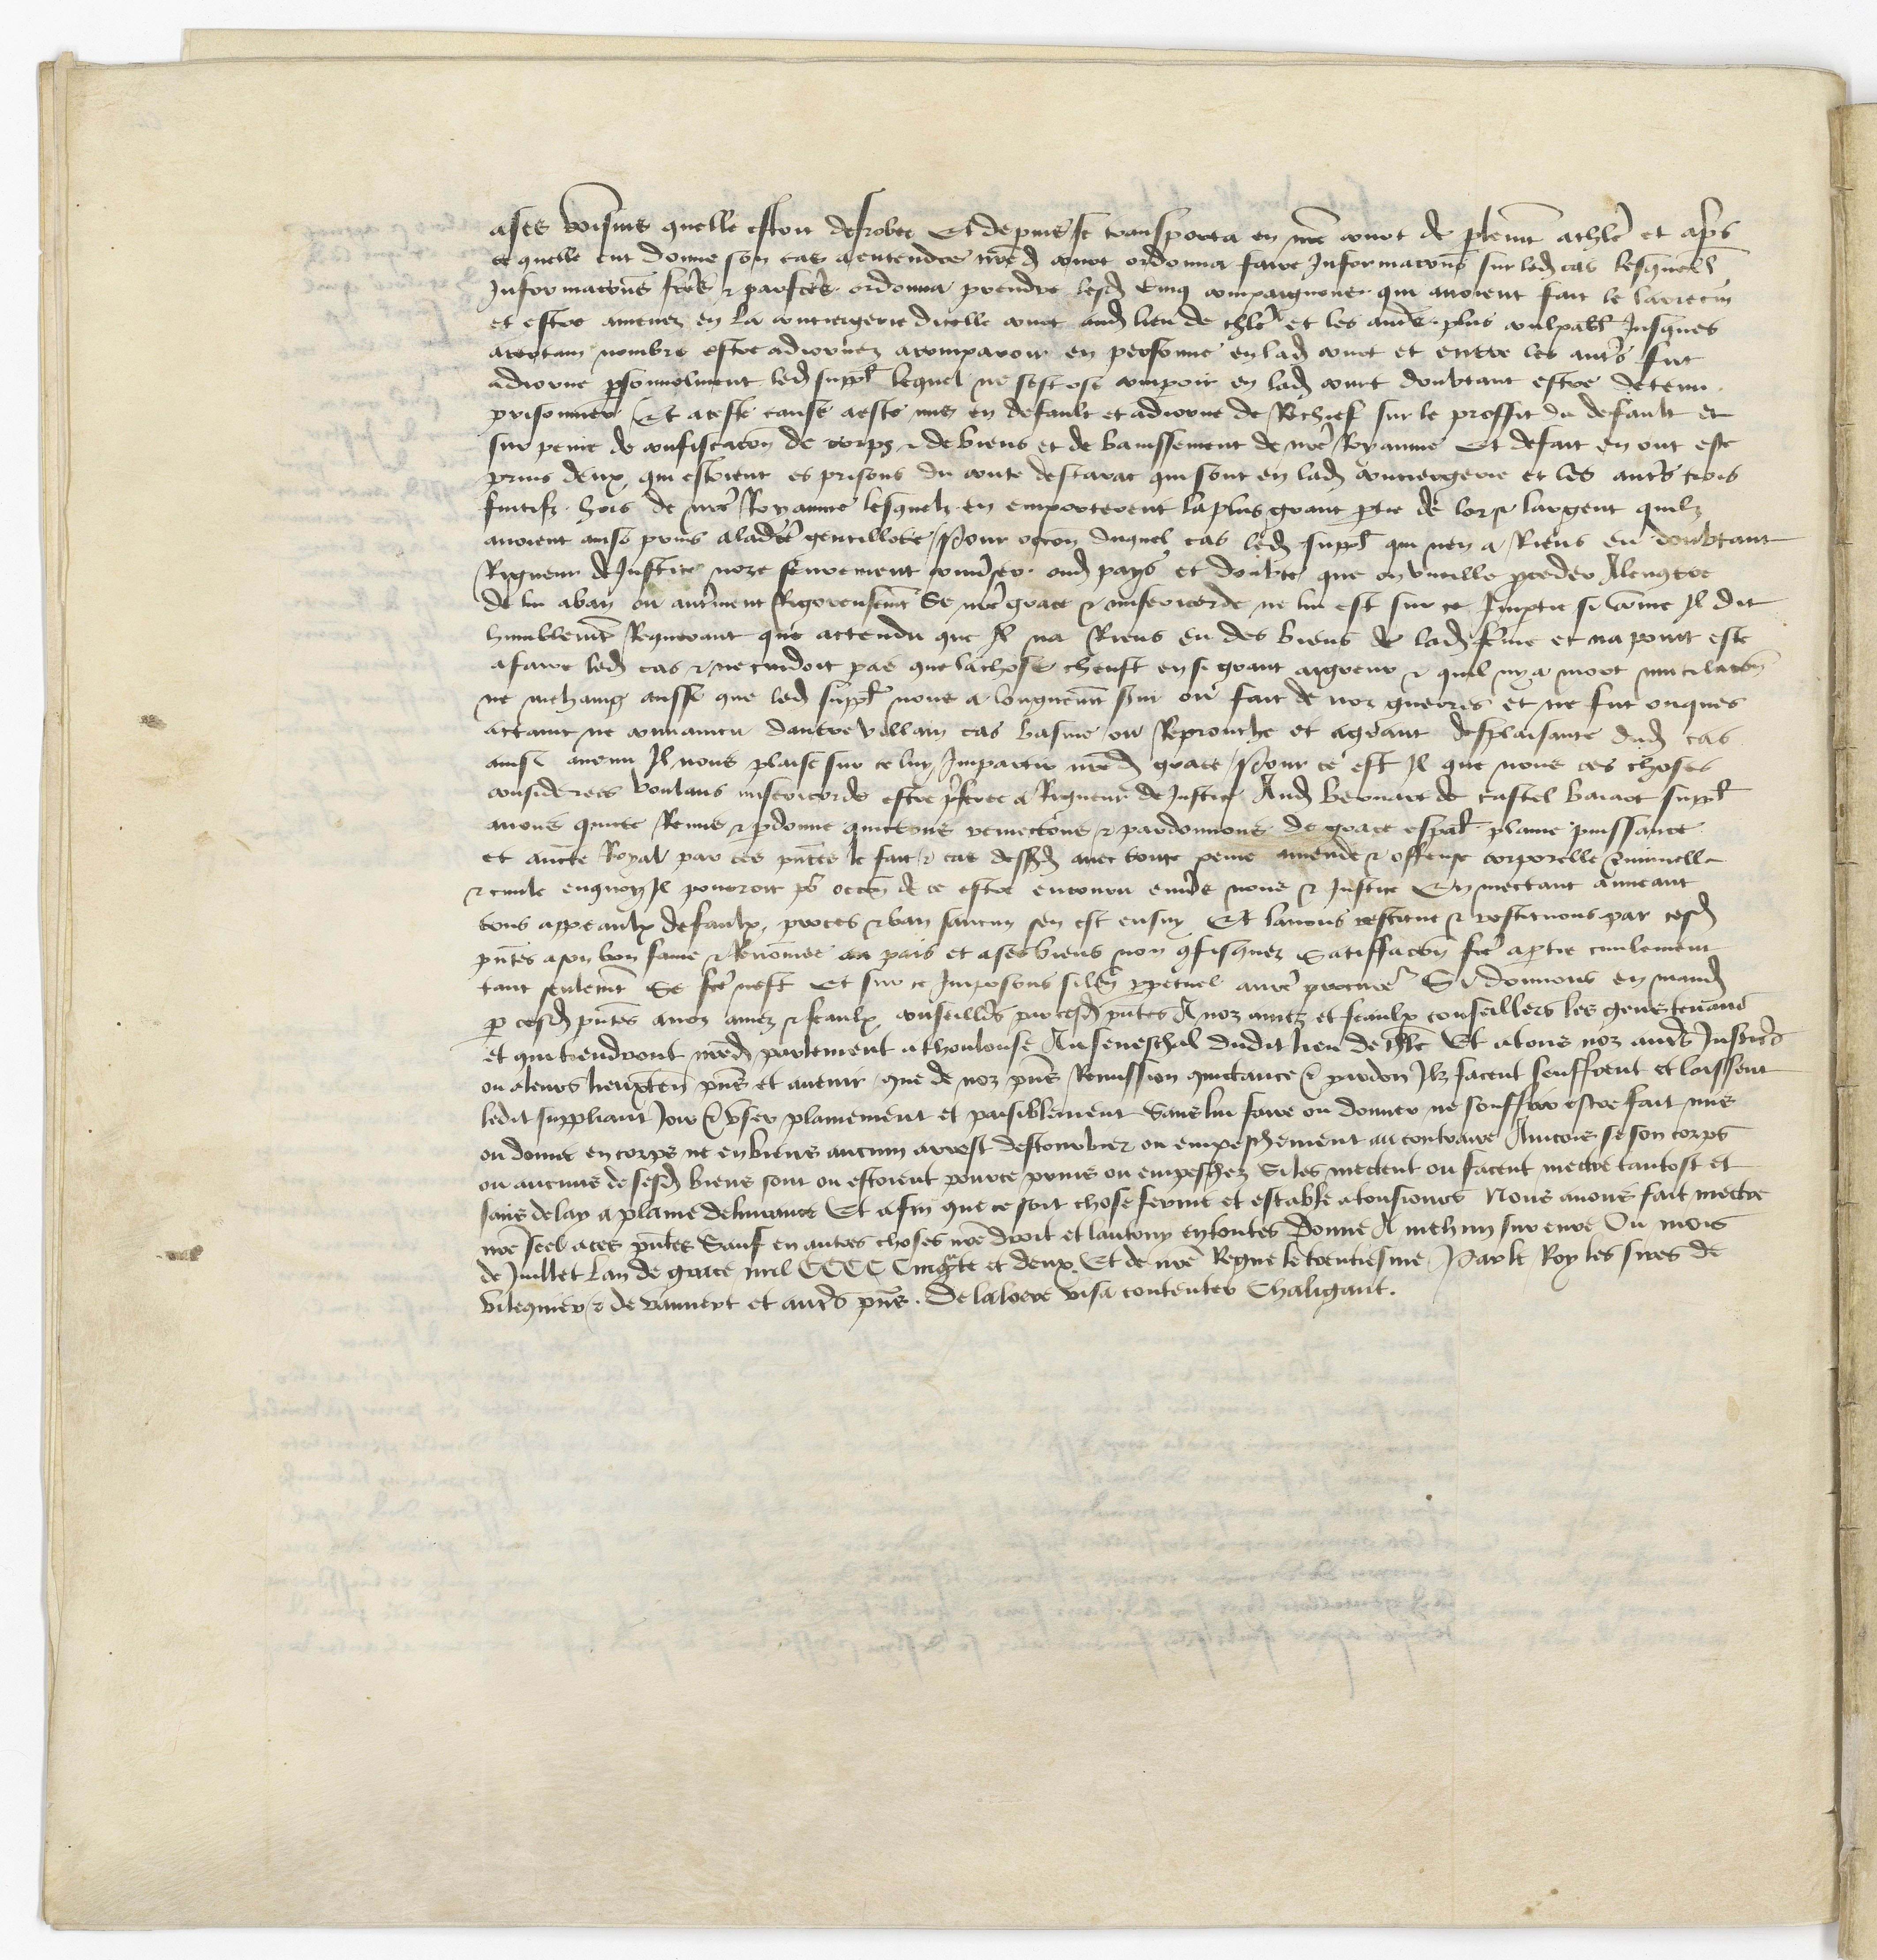 ases voisins quelle estoit desrobee Et depuis se transporta en nre court de plemt a thle et aps
ce quelle eut donne son cas a entendre nred court ordonna faire Informacons sur led cas lesquell
Informacons fces & parfces ordonna prendre lesd cinq compaignons qui avoient fait le larrecin
et estre amenez en la conciergerie dicelle court aud lieu de thle et les aucs plus coulpabl Jusques
a certain nombre estre adiournez a comparoir en personne en lad court et entre les autrs fut
adiourne psonnelment led suppl lequel ne sest ose compoir en lad court doubtant estre detenu
prisonnier Et a ceste cause a este mis en default et adiourne de Rechief sur le proffit du default et
sur peine de confiscacon de corps & de biens et de banissement de nre Royaume Et de fait en ont este
prins deux qui estoient es prisons du conte destarac qui sont en lad conciergerie et les autrs trois
fuitifz hors de nre Royaume lesquelz en emporterent la plus grant ptie de lor & largent quilz
avoient ainsi prins a ladte gentillote Pour occon duquel cas led suppl qui nen a Riens eu doubtant
Rigueur de Justice noze seurement convser oud pays et doubte que on vueille proceder Alencontre
de lui a ban ou autrment Rigoreusemt Se nre grace & misericorde ne lui est sur ce Imptie si comme Il dit
humblemt Requerant que attendu que Il na Riens eu des biens de lad feme et na point este
a faire led cas & ne cuidoit pas que la chose cheust en si grant aigreur & quil ny a mort mutilacon
ne mehaing aussi que led suppl nous a longuemt svi ou fait de noz guerres et ne fut onques
actaint ne convaincu dautre villain cas blasme ou Reprouche et ageant desplaisante dud cas
ainsi avenu Il nous plaise sur ce luy Impartir nred grace Pour ce est Il que nous ces choses
considerees voulans misericorde estre pferee a Rigueur de Justice Aud bernart de castel baiart suppl
avons quicte Remis & pdonne quictons remectons & pardonnons de grace espal plaine puissance
et aucte Royal par ces pntes le fait & cas dessusd avec toute peine amende & offense corporelle criminelle
& civile enquoy Il pourroit po occon de ce estre encouru envrs nous & Justice En mectant au neant
tous appeaulx defaulx proces & ban saucun sen est ensuy Et lavons restitue & restituons par cesd
pntes a son bon fame & Renommee au pais et a ses biens non cfisquez Satisfacon fce a ptie civilement
tant seulemt Se fce nest Et sur ce Imposons silen ppetuel a nre procur Si donnons en mand
p cesd pntes a noz amez & feaulx conseillers par cesd pntes A noz amez et feaulx conseillers les gens tenans
et qui tiendront nred parlement a thoulouse Au seneschal dudit lieu de thle Et a tous noz autrs Justicrs
ou a leurs lieuxten pns et avenir que de noz pns Remission quictance & pardon Ilz facent seuffrent et laissent
ledit suppliant Joir & user plainement et paisiblement Sans lui faire ou donner ne souffrir estre fait mis
ou donne en corps ne en biens aucun arrest destourbier ou empeschement au contraire Aincois se son corps
ou aucuns de sesd biens sont ou estoient pource prins ou empeschez Si les mectent ou facent mectre tantost et
sans delay a plaine delivrance Et afin que ce soit chose ferme et estable a tousiours Nous avons fait mectre
nre scel a ces pntes Sauf en autres choses nre droit et lautruy en toutes Donne A mehun sur evre Ou mois
de Juillet Lan de grace mil CCCC Cinqte et deux Et de nre Regne le trentiesme Par le Roy les sires de
vilequier & de vauvert et autrs pns . Delaloere visa contentor Chaligaut .